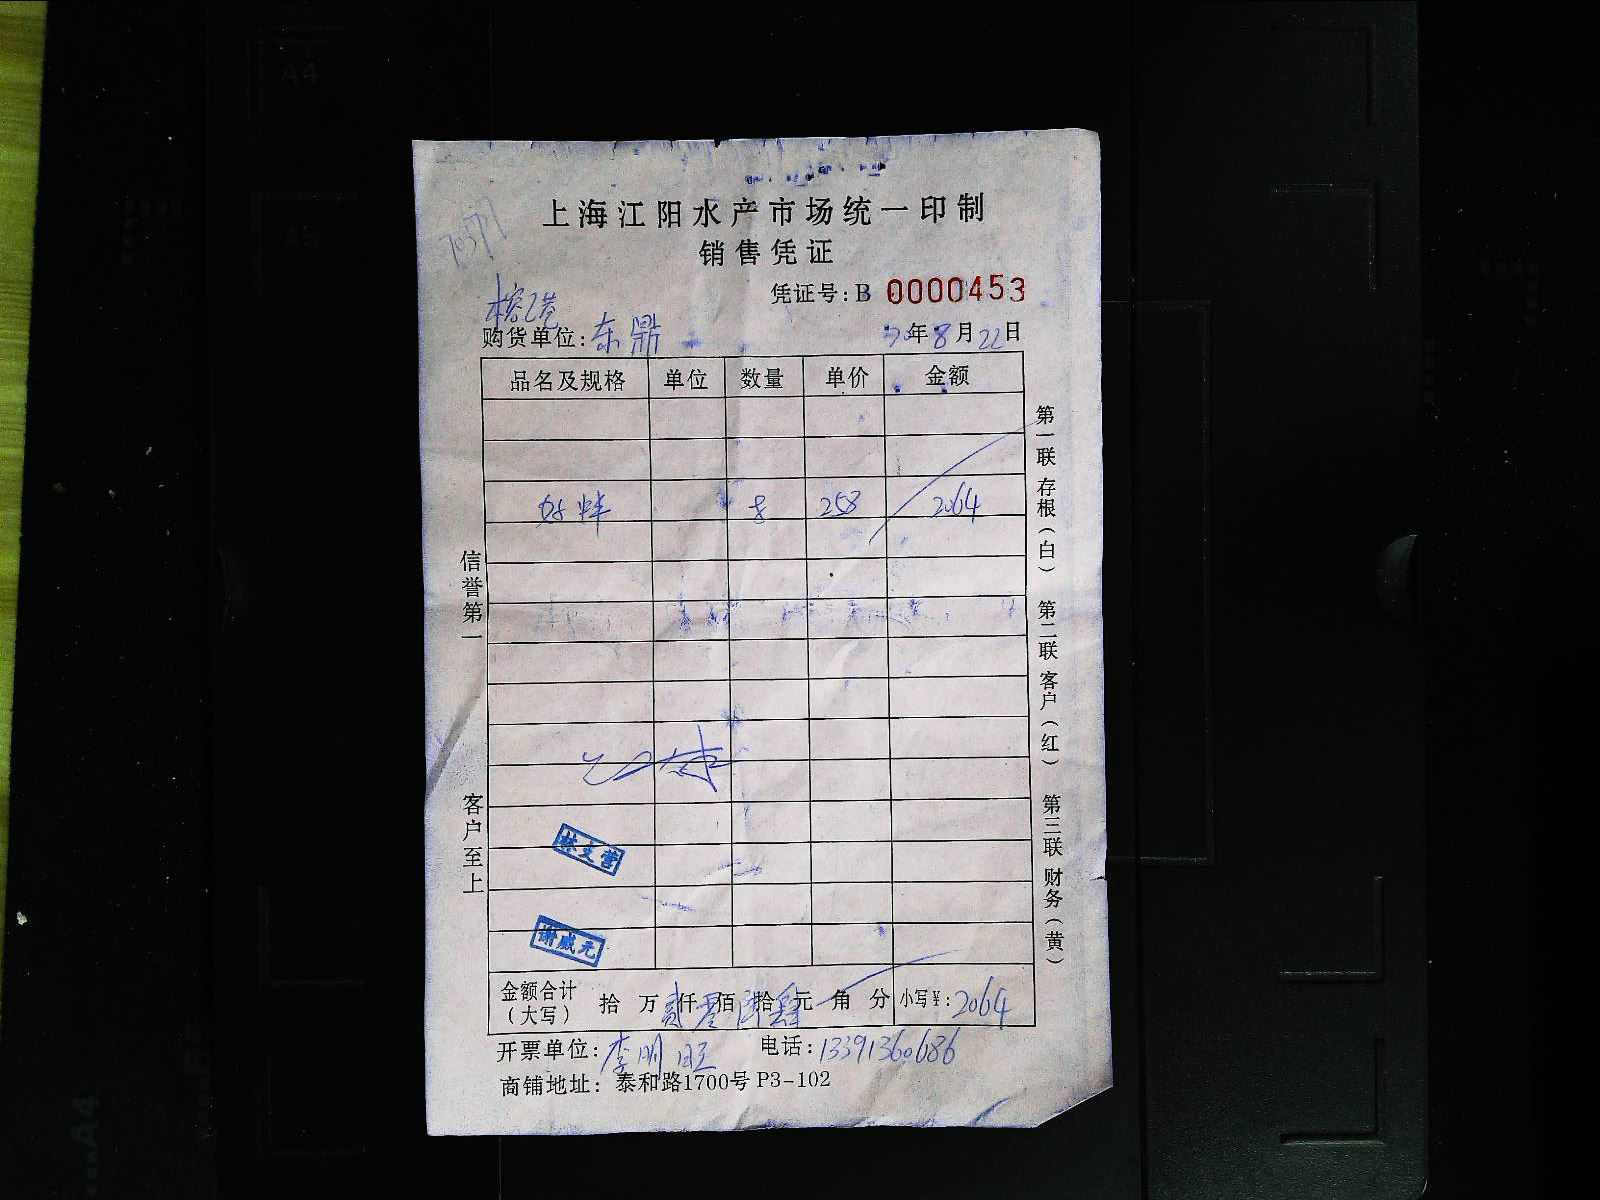 上海江阳水产市场统一印制
销售凭证
凭证号:B 0000453
榕港
购货单位:东鼎 年8月22日
品名及规格 单位 数量 单价 金额
8 258 2064
信誉第一
客户至上
第一联 存根(白) 第二联 客户(红) 第三联 财务(黄)
林文营
谢威元
金额合计(大写) 拾 万 贰仟零佰陆拾肆元 角 分 小写¥:2064
开票单位:李明旺 电话:13391360686
商铺地址:泰和路1700号 P3-102
A4
A5
A4